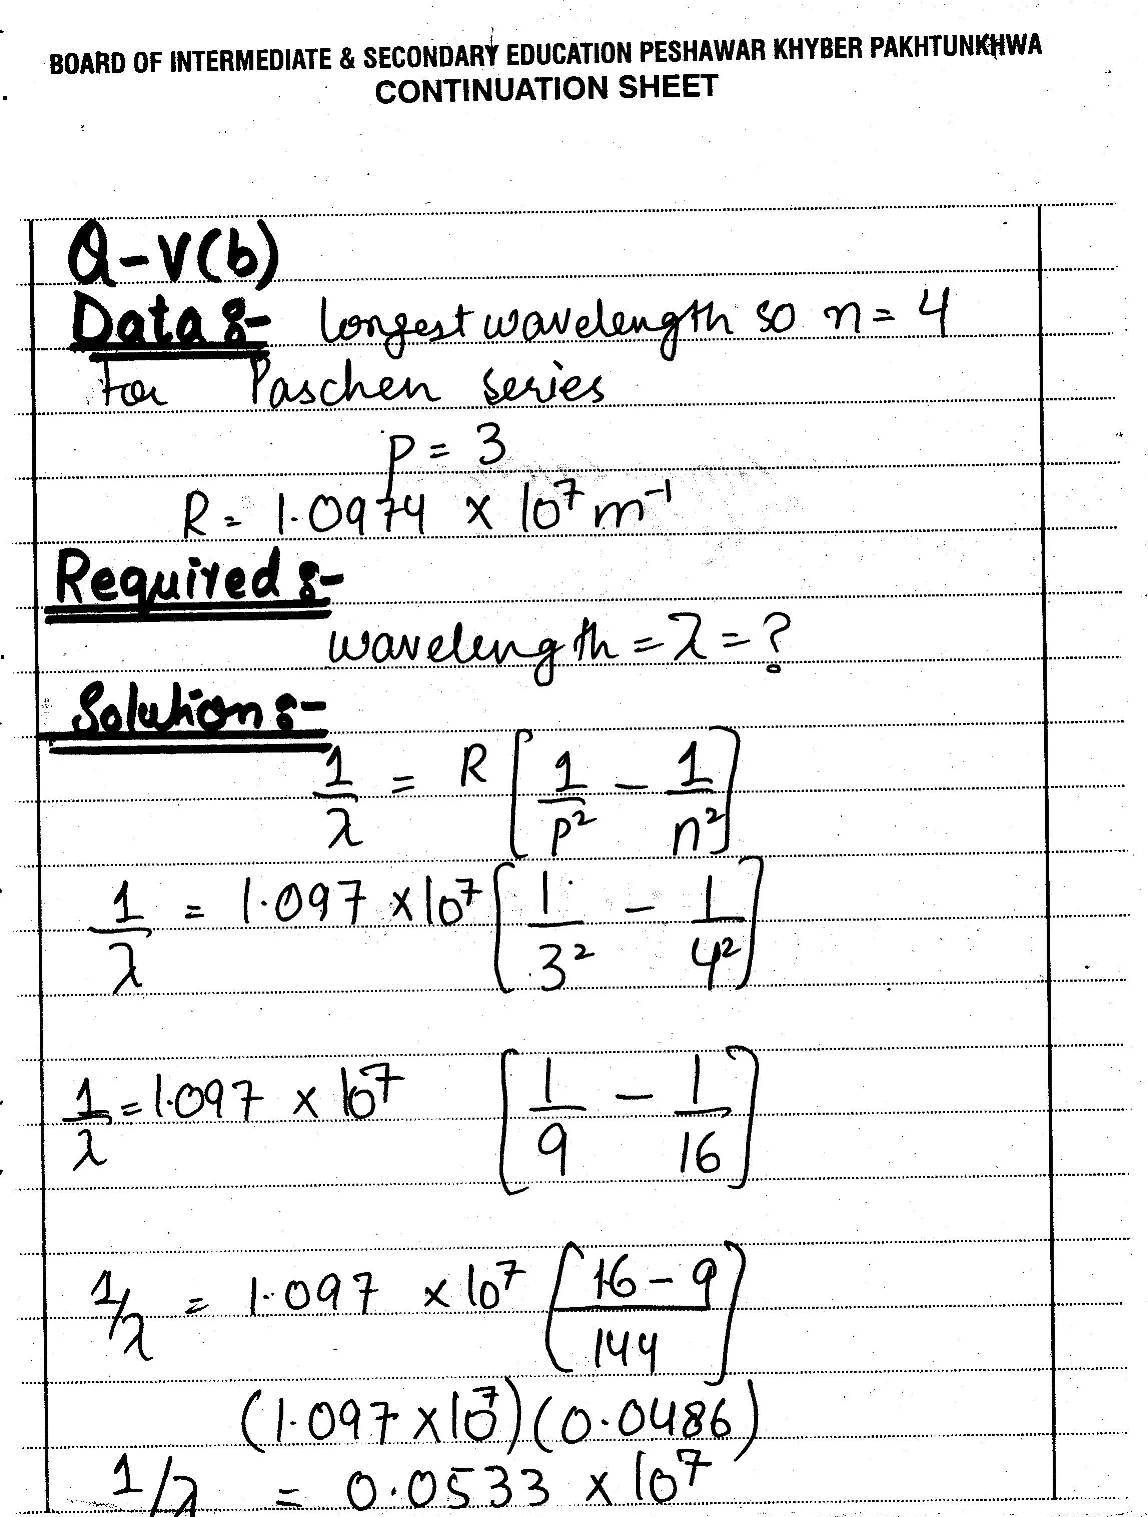 BOARD OF INTERMEDIATE & SECONDARY EDUCATION PESHAWAR KHYBER PAKHTUNKHWA
CONTINUATION SHEET
Q-V(b)
Data:- longest wavelength so n = 4
For Paschen series
P = 3
R = 1.0974 × 10⁷ m⁻¹
Required:-
wavelength = λ = ?
Solution:-
1/λ = R [1/P² - 1/n²]
1/λ = 1.097 × 10⁷ [1/3² - 1/4²]
1/λ = 1.097 × 10⁷ [1/9 - 1/16]
1/λ = 1.097 × 10⁷ [16-9/144]
(1.097 × 10⁷)(0.0486)
1/λ = 0.0533 × 10⁷